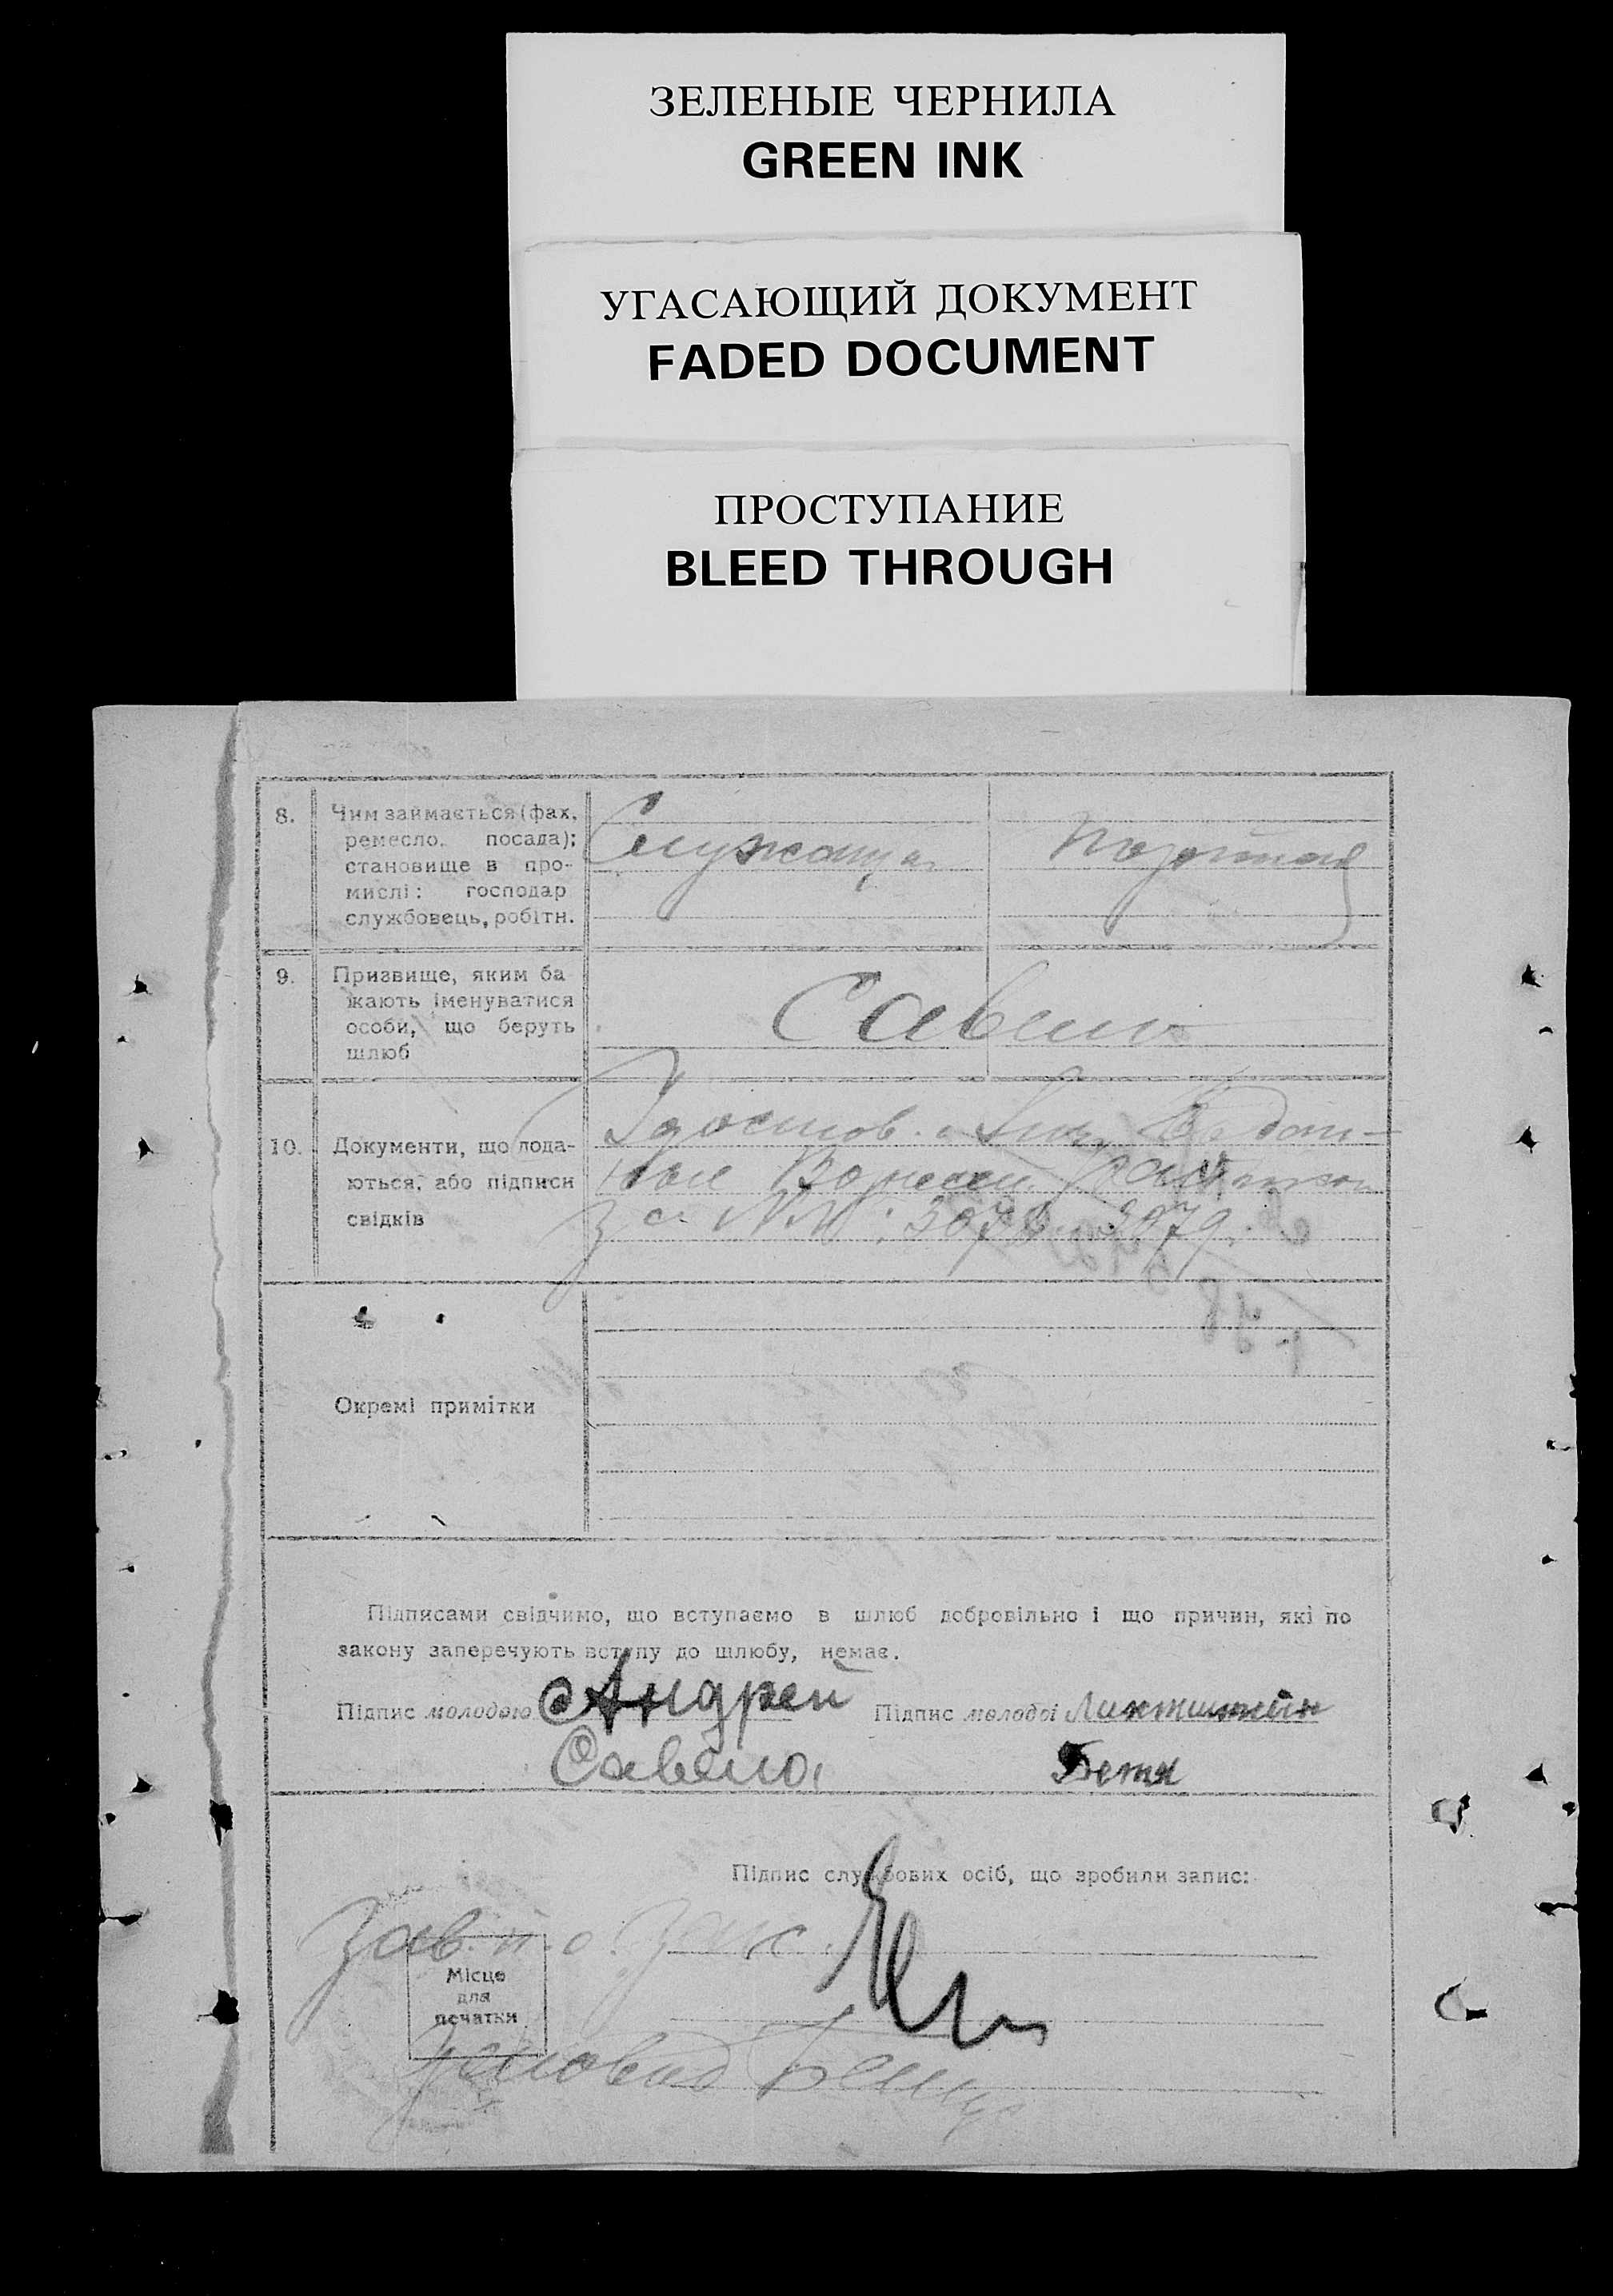 ЗЕЛЕНЫЕ ЧЕРНИЛА
GREEN INK
УГАСАЮЩИЙ ДОКУМЕНТ
FADED DOCUMENT
ПРОСТУПАНИЕ
BLEED THROUGH
8. Чим займається (фах,
ремесло, посада);
становище в про-
мислі: господар
службовець, робітн.
Служащая
9. Призвище, яким ба
жають іменуватися
особи, що беруть
шлюб
10. Документи, що пода-
ються, або підписи
свідків
Удостов.
за №№: 3078 3079.
Окремі примітки
Підписами свідчимо, що вступаємо в шлюб добровільно і що причин, які по
закону заперечують вступу до шлюбу, немає.
Підпис молодого Андрей Підпис молодої Лихтштейн
Бетя
Підпис службових осіб, що зробили запис:
Зав.
Місце
для
печатки